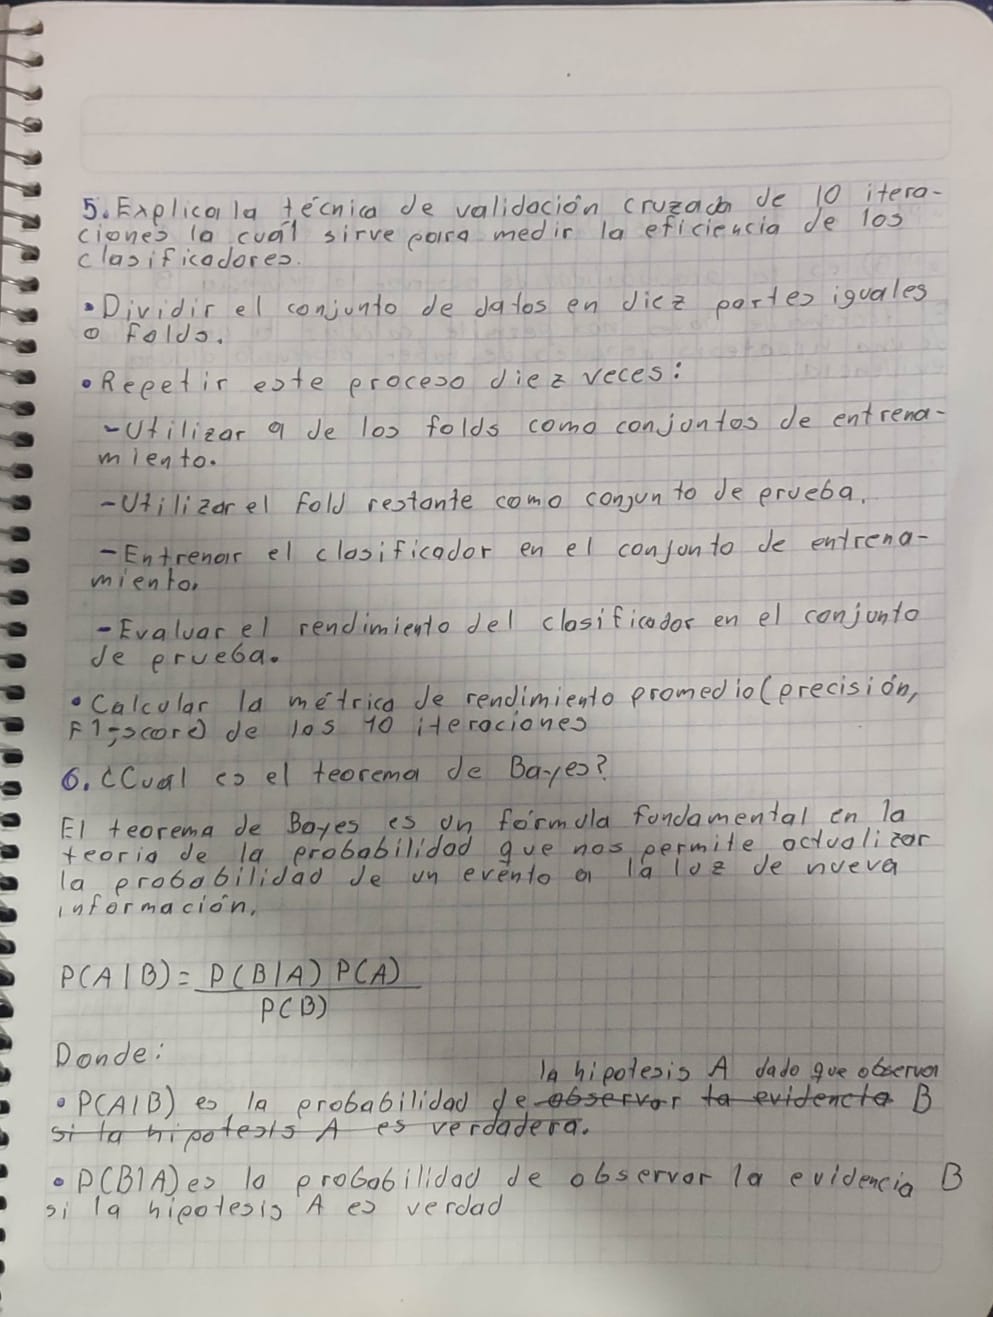 5. Explica la técnica de validación cruzada de 10 itera-
ciones la cual sirve para medir la eficiencia de los
clasificadores.
• Dividir el conjunto de datos en diez partes iguales
o folds.
• Repetir este proceso diez veces:
- Utilizar 9 de los folds como conjuntos de entrena-
miento.
- Utilizar el fold restante como conjunto de prueba.
- Entrenar el clasificador en el conjunto de entrena-
miento.
- Evaluar el rendimiento del clasificador en el conjunto
de prueba.
• Calcular la métrica de rendimiento promedio (precisión,
F1-score) de los 10 iteraciones
6. ¿Cual es el teorema de Bayes?
El teorema de Bayes es un fórmula fundamental en la
teoria de la probabilidad que nos permite actualizar
la probabilidad de un evento a la luz de nueva
información.
P(A|B) = P(B|A) P(A)
P(B)
Donde:
la hipotesis A dado que observar
• P(A|B) es la probabilidad de observar la evidencia B
si la hipotesis A es verdadera.
• P(B|A) es la probabilidad de observar la evidencia B
si la hipotesis A es verdad